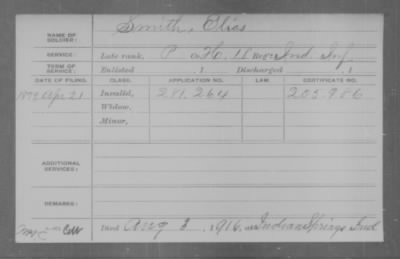 NAME OF SOLDIER: Smith, Elias
SERVICE: Late rank, P. Co. H. 18 Reg't Ind Inf.
TERM OF SERVICE: Enlisted 1 Discharged , 1
DATE OF FILING. CLASS. APPLICATION NO. LAW. CERTIFICATE NO.
1879 Apr 21 Invalid, 281.264 205.986
Widow,
Minor,
ADDITIONAL SERVICES:
REMARKS:
Died Aug 3, 1916, at Indian Springs Ind